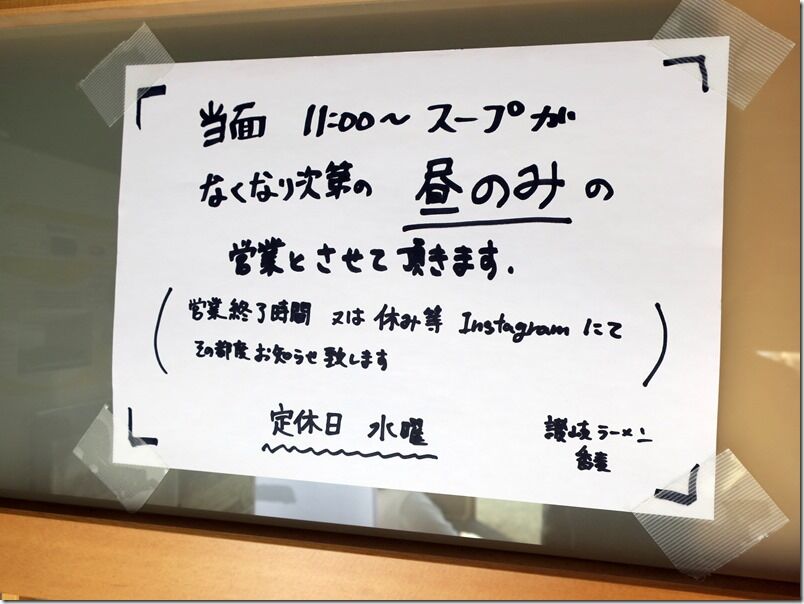 当面 11:00～スープが
なくなり次第の 昼のみの
営業とさせて頂きます.
(営業終了時間 又は 休み等 Instagramにて
その都度お知らせ致します)
定休日 水曜
讃岐ラーメン